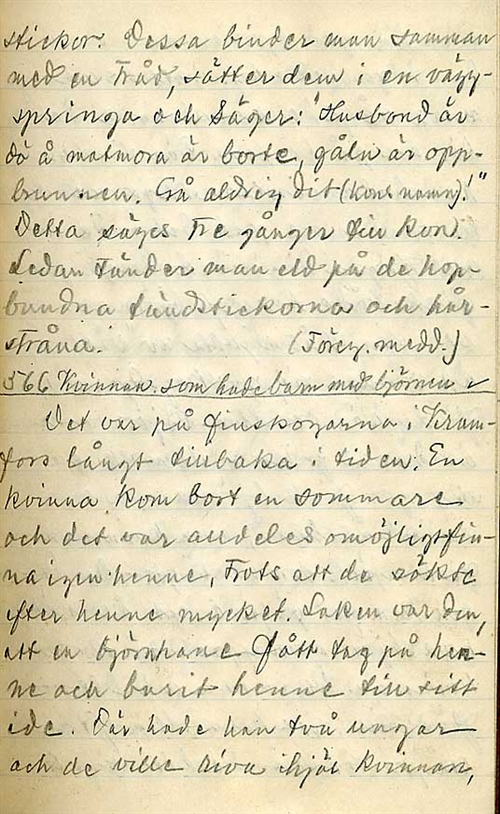 stickor. Dessa binder man samman
med en tråd, sätter dem i en vägg-
springa och säger: "Husbond är
dö å matmora är borte, gåln är opp-
brunnen. Gå aldrig dit (kons namn)!"
Detta säges tre gånger till kon.
Sedan tänder man eld på de hop-
bundna tändstickorna och hår-
stråna. (Föreg. medd.)
566 Kvinnan som hade barn med björnen
Det var på finskogarna i Kram-
fors långt tillbaka i tiden. En
kvinna kom bort en sommare
och det var alldeles omöjligt fin-
na igen henne, trots att de sökte
efter henne mycket. Saken var den,
att en björnhane fått tag på hen-
ne och burit henne till sitt
ide. Där hade han två ungar
och de ville riva ihjäl kvinnan,